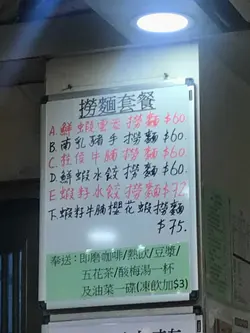 撈麵套餐
A. 鮮蝦雲吞撈麵 $60.
B. 南乳豬手撈麵 $60.
C. 柱侯牛腩撈麵 $60.
D. 鮮蝦水餃撈麵 $60.
E. 蝦籽水餃撈麵 $72.
F. 蝦籽牛腩櫻花蝦撈麵
$75.
奉送:即磨咖啡/熱飲/豆漿/
五花茶/酸梅湯一杯
及油菜一碟(凍飲加$3)